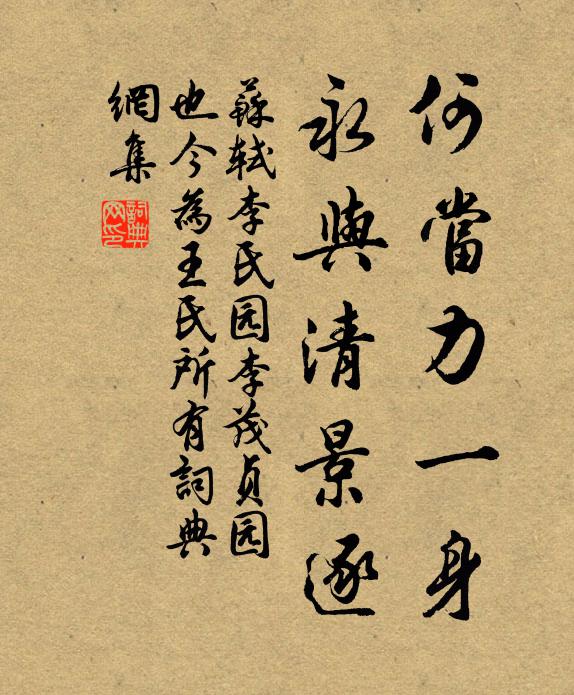 何當力一身
永與清景逐
蘇軾李氏园李茂贞园
也今為王氏所有詞典
網集
詞典
网印